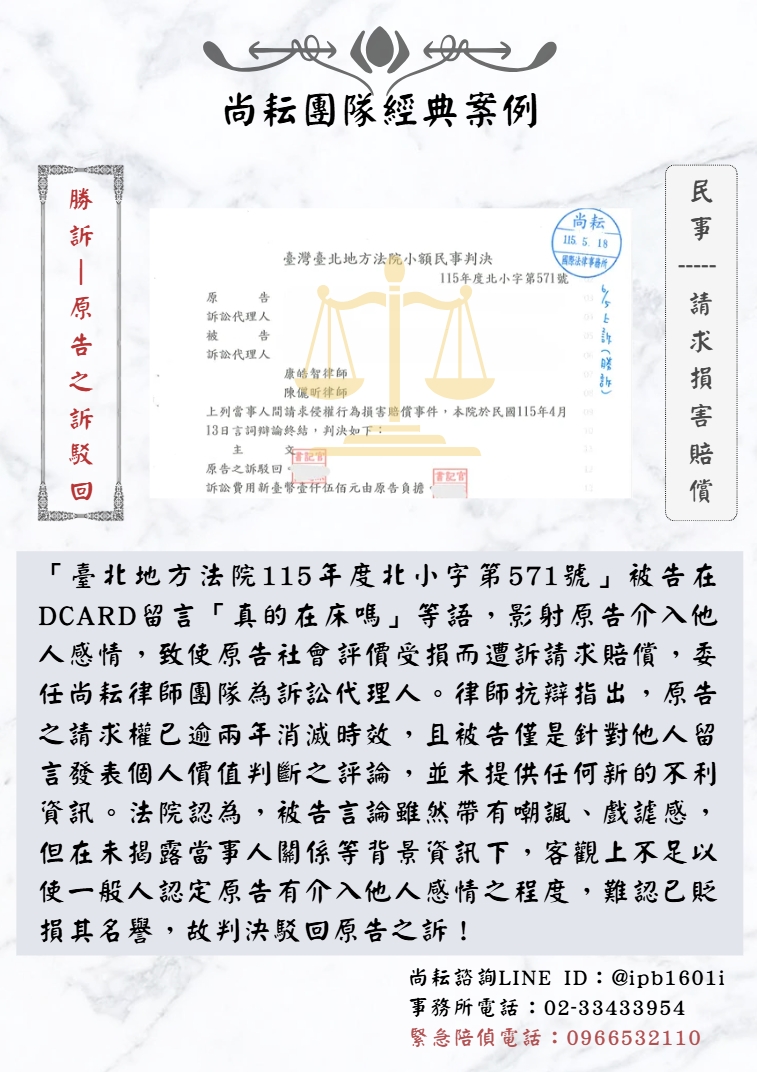 尚耘團隊經典案例
勝訴—原告之訴駁回
民事-----請求損害賠償
尚耘
115. 5. 18
國際法律事務所
臺灣臺北地方法院小額民事判決
115年度北小字第571號
原告
訴訟代理人
被告
訴訟代理人
康皓智律師
陳儷昕律師
上列當事人間請求侵權行為損害賠償事件,本院於民國115年4月
13日言詞辯論終結,判決如下:
主文
書記官
原告之訴駁回。
書記官
訴訟費用新臺幣壹仟伍佰元由原告負擔。
「臺北地方法院115年度北小字第571號」被告在
DCARD留言「真的在床嗎」等語,影射原告介入他
人感情,致使原告社會評價受損而遭訴請求賠償,委
任尚耘律師團隊為訴訟代理人。律師抗辯指出,原告
之請求權已逾兩年消滅時效,且被告僅是針對他人留
言發表個人價值判斷之評論,並未提供任何新的不利
資訊。法院認為,被告言論雖然帶有嘲諷、戲謔感,
但在未揭露當事人關係等背景資訊下,客觀上不足以
使一般人認定原告有介入他人感情之程度,難認已貶
損其名譽,故判決駁回原告之訴!
尚耘諮詢LINE ID:@ipb1601i
事務所電話:02-33433954
緊急陪偵電話:0966532110